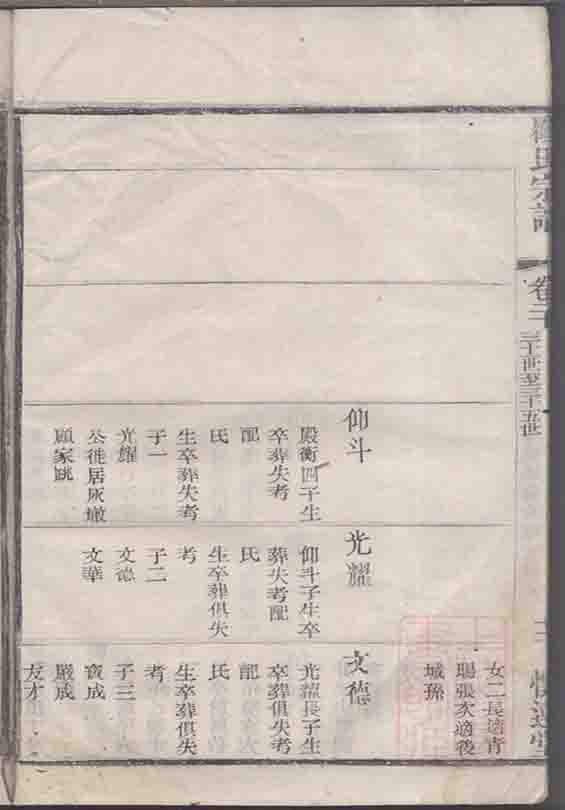 氏宗譜
卷三
三十世至三十五世
女二長適青
聰張次適後
城孫
仰斗
殿衡四子生
卒葬失考
配
氏
生卒葬失考
子一
光耀
公徙居灰墩
顧家跳
光耀
仰斗子生卒
葬失考配
氏
生卒葬俱失
考
子二
文德
文華
文德
光耀長子生
卒葬俱失考
配
氏
生卒葬俱失
考
子三
寶成
嚴成
友才